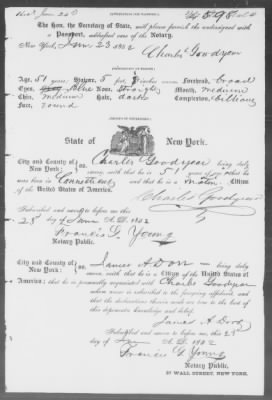 The Hon. the Secretary of State, will please furnish the undersigned with a
Passport, addressed care of the Notary.
New York, Jan 23 1862
Charles Goodyear
Age, 51 years, Stature, 5 feet, inches Forehead, broad
Eyes, Blue Nose, Straight Mouth, medium
Chin, medium Hair, dark Complexion, billious
Face, round
State of New York.
City and County of New York: Charles Goodyear being duly
sworn, saith, that he is 51 years of age; that he
was born in Connecticut and that he is a Citizen
of the United States of America.
Charles Goodyear
Subscribed and sworn to before me this
23 day of Jan A.D. 1862
Francis G. Young
Notary Public.
City and County of New York: James A Dorr being duly
sworn, saith, that he is a Citizen of the United States of
America; that he is personally acquainted with Charles Goodyear
whose name is subscribed to the foregoing affidavit, and
that the declarations therein made are true to the best of
this deponent's knowledge and belief.
James A. Dorr
Subscribed and sworn to before me, this 23
day of Jan A.D. 1862
Francis G. Young
Notary Public.
57 WALL STREET, NEW YORK.